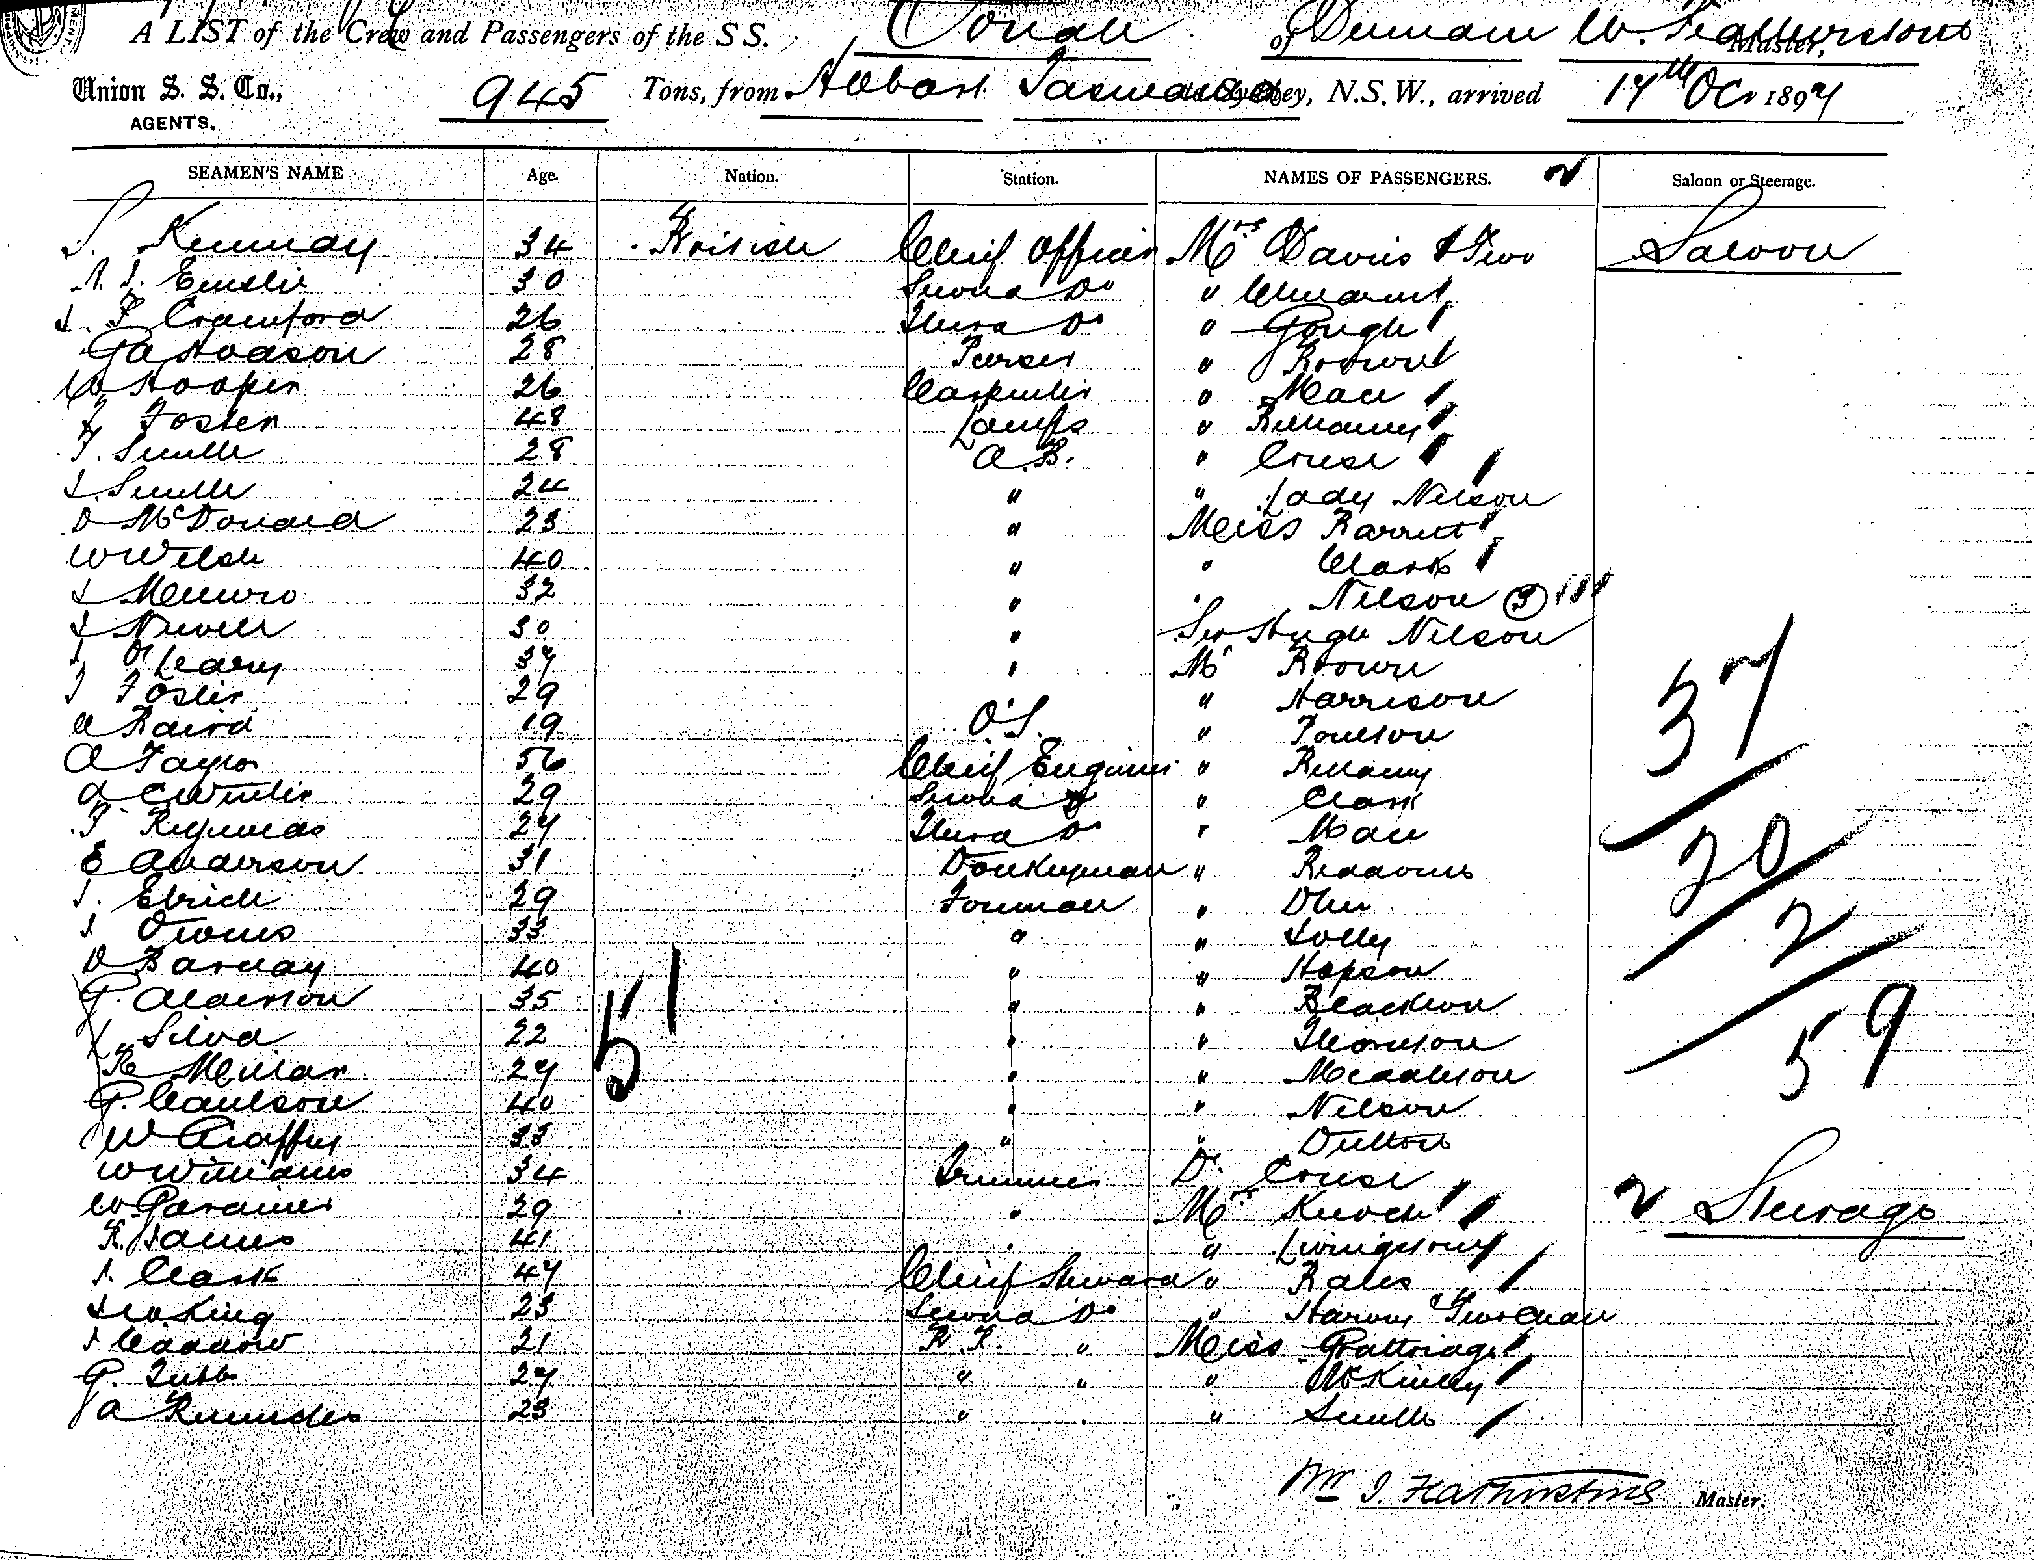 A LIST of the Crew and Passengers of the S S. Oonah of Dunedin W. Featherstone Master,
Union S. S. Co., AGENTS. 945 Tons, from Hobart Tasmania to Sydney, N.S.W., arrived 17th Oct 1897
SEAMEN'S NAME Age. Nation. Station. NAMES OF PASSENGERS. Saloon or Steerage.
Kennedy 34 British Chief Officer Mrs Davies & Two Saloon
Emslie 30 Second Do "
J. F Crawford 26 Third Do " Gough
G A Hodson 28 Purser " Brown
W Hooper 26 Carpenter " Mace
Foster 48 Lamps " Bellamy
F. Smith 28 A.B. " Cruse
J Smith 24 " " Lady Nelson
D McDonald 23 " Miss Barrett
W Welsh 40 " " Clark
J Munro 32 " " Nelson (3)
J Newell 30 " Sir Hugh Nelson
J O'Leary 37 " Mr Brown
J Foster 29 " Harrison
A Baird 19 O.S. " Poulson
A Taylor 56 Chief Engineer " Bellamy
A C Winter 29 Second Do " Clark
F Reynolds 27 Third Do " Mace
E Anderson 31 Donkeyman "
J. 29 Foreman "
J Owens 33 " " Jolly
D Barclay 40 " " Hopson
G. Alderson 35 " " Blackwood
J. Silva 22 " " Thomson
R Millar 27 " " Middleton
G. Coulson 40 " " Nelson
W 33 " " Dutton
W Williams 34 Trimmer Dr. Cruse
W Gardiner 29 " Mrs
R. James 41 " " Livingstone
J. Clark 47 Chief Steward " Bates
J W King 23 Second Do " Harvey
J 21 F. F. " Miss
G. Tubb 27 " " " McKinley
A 23 " " " Smith
51
37
20
2
59
Steerage
Wm J. Featherstone Master.